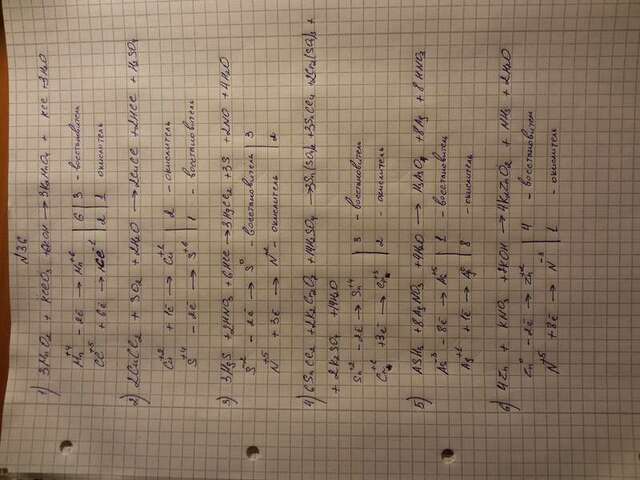 N36
1) 3MnO2 + KClO3 + 6KOH → 3K2MnO4 + KCl + 3H2O
Mn+4 - 2ē → Mn+6 | 6 | 3 - восстановитель
Cl+5 + 6ē → Cl-1 | 2 | 1 - окислитель
2) 2CuCl2 + SO2 + 2H2O → 2CuCl + 2HCl + H2SO4
Cu+2 + 1ē → Cu+1 | 2 - окислитель
S+4 - 2ē → S+6 | 1 - восстановитель
3) 3H2S + 2HNO3 + 6HCl → 3H2Cl2 + 3S + 2NO + 4H2O
S-2 - 2ē → S0 - восстановитель | 3
N+5 + 3ē → N+2 - окислитель | 2
4) 6SnCl2 + 2K2Cr2O7 + 14H2SO4 → 3Sn(SO4)2 + 3SnCl4 + 2Cr2(SO4)3 +
+ 2K2SO4 + 14H2O
Sn+2 - 2ē → Sn+4 | 3 - восстановитель
Cr+6 + 3ē → Cr+3 | 2 - окислитель
5) AsH3 + 8AgNO3 + 4H2O → H3AsO4 + 8Ag + 8HNO3
As-3 - 8ē → As+5 | 1 - восстановитель
Ag+1 + 1ē → Ag0 | 8 - окислитель
6) 4Zn + KNO3 + 7KOH → 4K2ZnO2 + NH3 + 2H2O
Zn0 - 2ē → Zn+2 | 4 - восстановитель
N+5 + 8ē → N-3 | 1 - окислитель